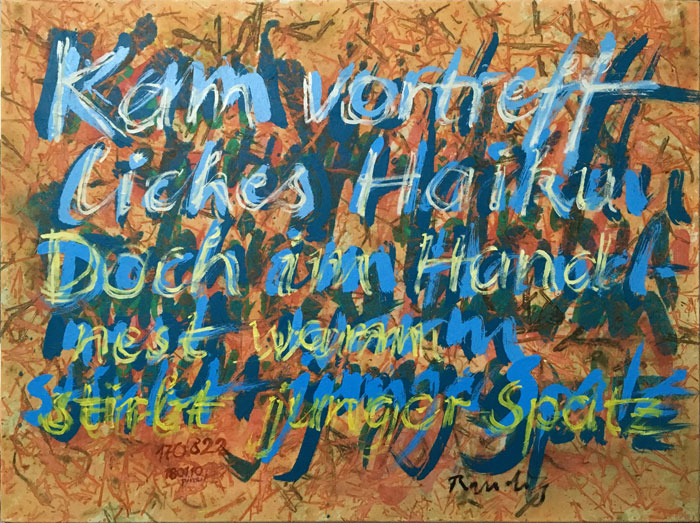 Kam vortreff
liches Haiku
Doch im Hand
nest warm
stirbt junger Spatz
170822
180110